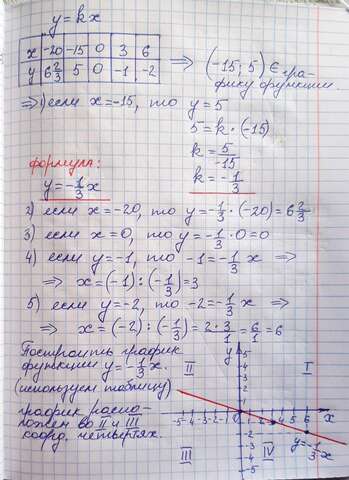 y = kx
x -20 -15 0 3 6
y 6 2/3 5 0 -1 -2 ⟹ (-15; 5) ∈ гра-
фику функции.
⟹ 1) если x = -15, то y = 5
5 = k · (-15)
k = 5/-15
формула: k = -1/3
y = -1/3 x
2) если x = -20, то y = -1/3 · (-20) = 6 2/3
3) если x = 0, то y = -1/3 · 0 = 0
4) если y = -1, то -1 = -1/3 x ⟹
⟹ x = (-1) : (-1/3) = 3
5) если y = -2, то -2 = -1/3 x ⟹
⟹ x = (-2) : (-1/3) = 2·3/1 = 6/1 = 6
Построить график
функции y = -1/3 x.
(используем таблицу)
график распо-
ложен во II и IV
коорд. четвертях.
y
5
4
3
2
1
II I
-5 -4 -3 -2 -1 0 1 2 3 4 5 6 x
-1
-2
-3
-4
-5
III IV
y = -1/3 x